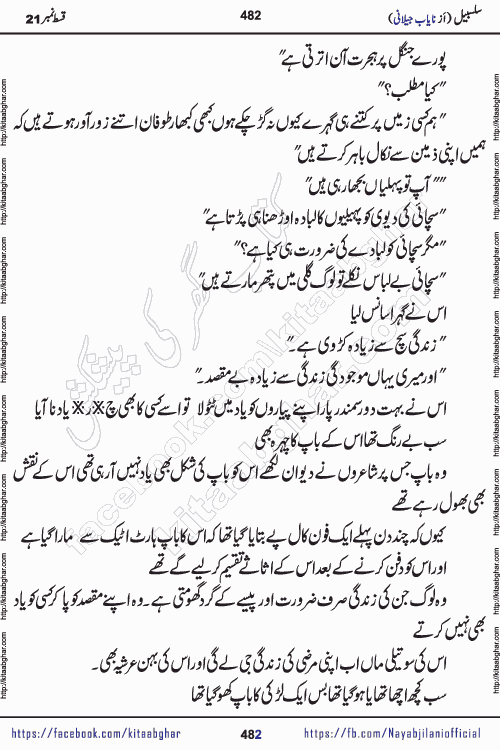 سلسبیل (از نایاب جیلانی)
482
قسط نمبر 21
پورے جنگل پر ہجرت آن اترتی ہے"
"کیا مطلب؟"
"ہم کسی زمیں پر کتنے ہی گہرے کیوں نہ گڑ چکے ہوں کبھی کبھار طوفان اتنے زور آور ہوتے ہیں کہ
ہمیں اپنی ذمین سے نکال باہر کرتے ہیں"
"" آپ تو پہلیاں بجھا رہی ہیں"
"سچائی کی دیوی کو پہلیوں کا لبادہ اوڑھنا ہی پڑتا ہے"
"مگر سچائی کو لبادے کی ضرورت ہی کیا ہے؟"
"سچائی بے لباس نکلے تو لوگ گلی میں پتھر مارتے ہیں"
اس نے گہرا سانس لیا
"زندگی سچ سے زیادہ کڑوی ہے۔"
"اور میری یہاں موجودگی زندگی سے زیادہ بے مقصد۔"
اس نے بہت دور سمندر پار اپنے پیاروں کو یاد میں ٹٹولا تو اسے کسی کا بھی یاد نا آیا
سب بے رنگ تھا اس کے باپ کا چہرہ بھی
وہ باپ جس پر شاعروں نے دیوان لکھے اس کو باپ کی شکل بھی یاد نہیں آرہی تھی اس کے نقش
بھی بھول رہے تھے
کیوں کہ چند دن پہلے ایک فون کال پے بتایا گیا تھا کہ اس کا باپ ہارٹ اٹیک سے مارا گیا ہے
اور اس کو دفن کرنے کے بعد اس کے اثاثے تقسیم کر لیے گے تھے
وہ لوگ جن کی زندگی صرف ضرورت اور پیسے کے گرد گھومتی ہے۔ وہ اپنے مقصد کو پا کر کسی کو یاد
بھی نہیں کرتے
اس کی سوتیلی ماں اب اپنی مرضی کی زندگی جی لے گی اور اس کی بہن عرشیہ بھی۔
سب کچھ اچھا تھا یا ہو گیا تھا بس ایک لڑکی کا باپ کھو گیا تھا
https://facebook.com/kitaabghar
482
https://fb.com/Nayabjilaniofficial
http://kitaabghar.com
کتاب گھر کی پیشکش
facebook.com/kitaabghar
kitaabghar.com